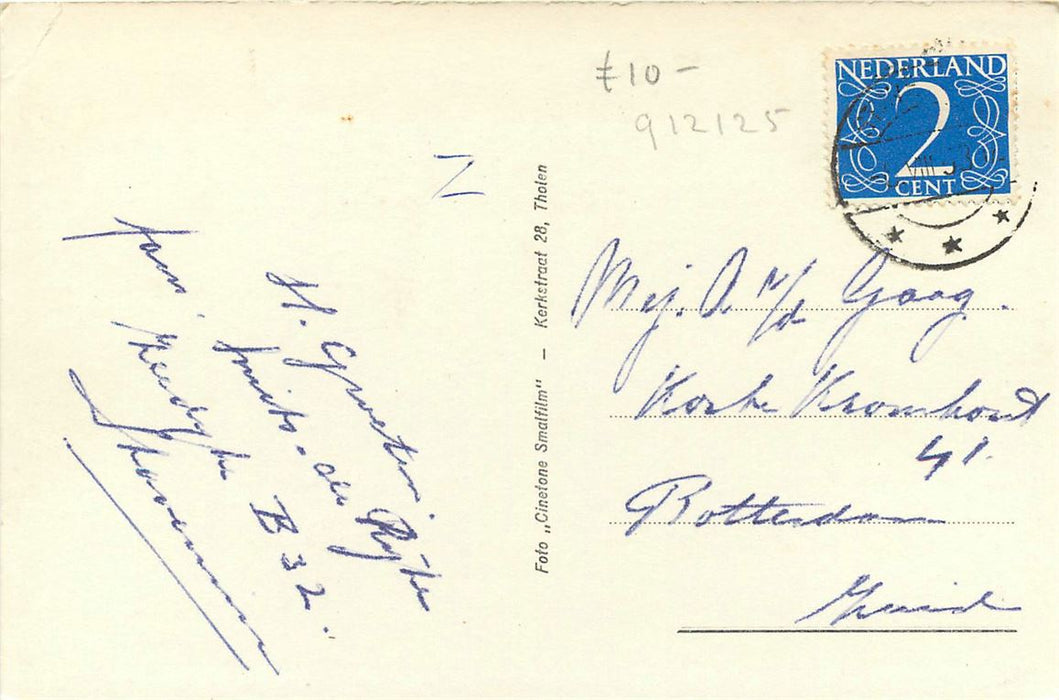 H. Groeten
fam. Smits-de Rijke
B 32.
Stavenisse
N
Foto „Cinetone Smalfilm" – Kerkstraat 28, Tholen
f 10 –
912125
NEDERLAND
2
CENT
Mej. A v/d Gaag.
Korte Kromhout
41.
Rotterdam
Zuid